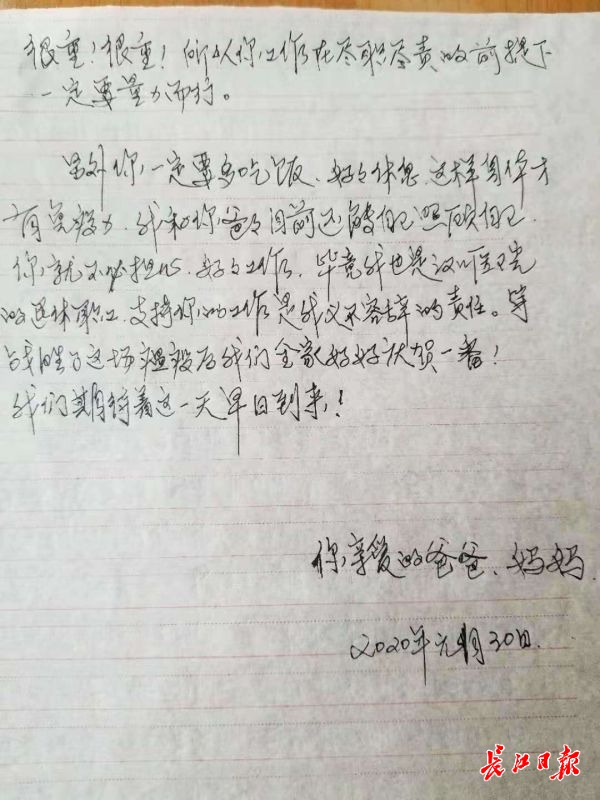 很重！很重！所以你工作在尽职尽责的前提下
一定要量力而行。
另外你一定要多吃饭、好好休息，这样身体才
有免疫力，我和你爸爸目前还能自己照顾自己，
你就不必担心，好好工作，毕竟我也是汉川医院
的退休职工，支持你的工作是我义不容辞的责任。等
战胜了这场瘟疫后我们全家好好庆贺一番！
我们期待着这一天早日到来！
你亲爱的爸爸、妈妈
2020年元月30日.
长江日报